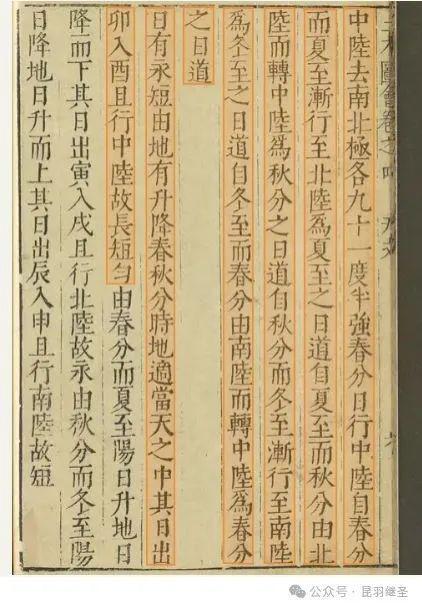 圖會卷之
中陸去南北極各九十一度半強春分日行中陸自春分
而夏至漸行至北陸爲夏至之日道自夏至而秋分由北
陸而轉中陸爲秋分之日道自秋分而冬至漸行至南陸
爲冬至之日道自冬至而春分由南陸而轉中陸爲春分
之日道
日有永短由地有升降春秋分時地適當天之中其日出
卯入酉且行中陸故長短勻由春分而夏至陽日升地日
降而下其日出寅入戌且行北陸故永由秋分而冬至陽
日降地日升而上其日出辰入申且行南陸故短
公众号·昆羽继圣